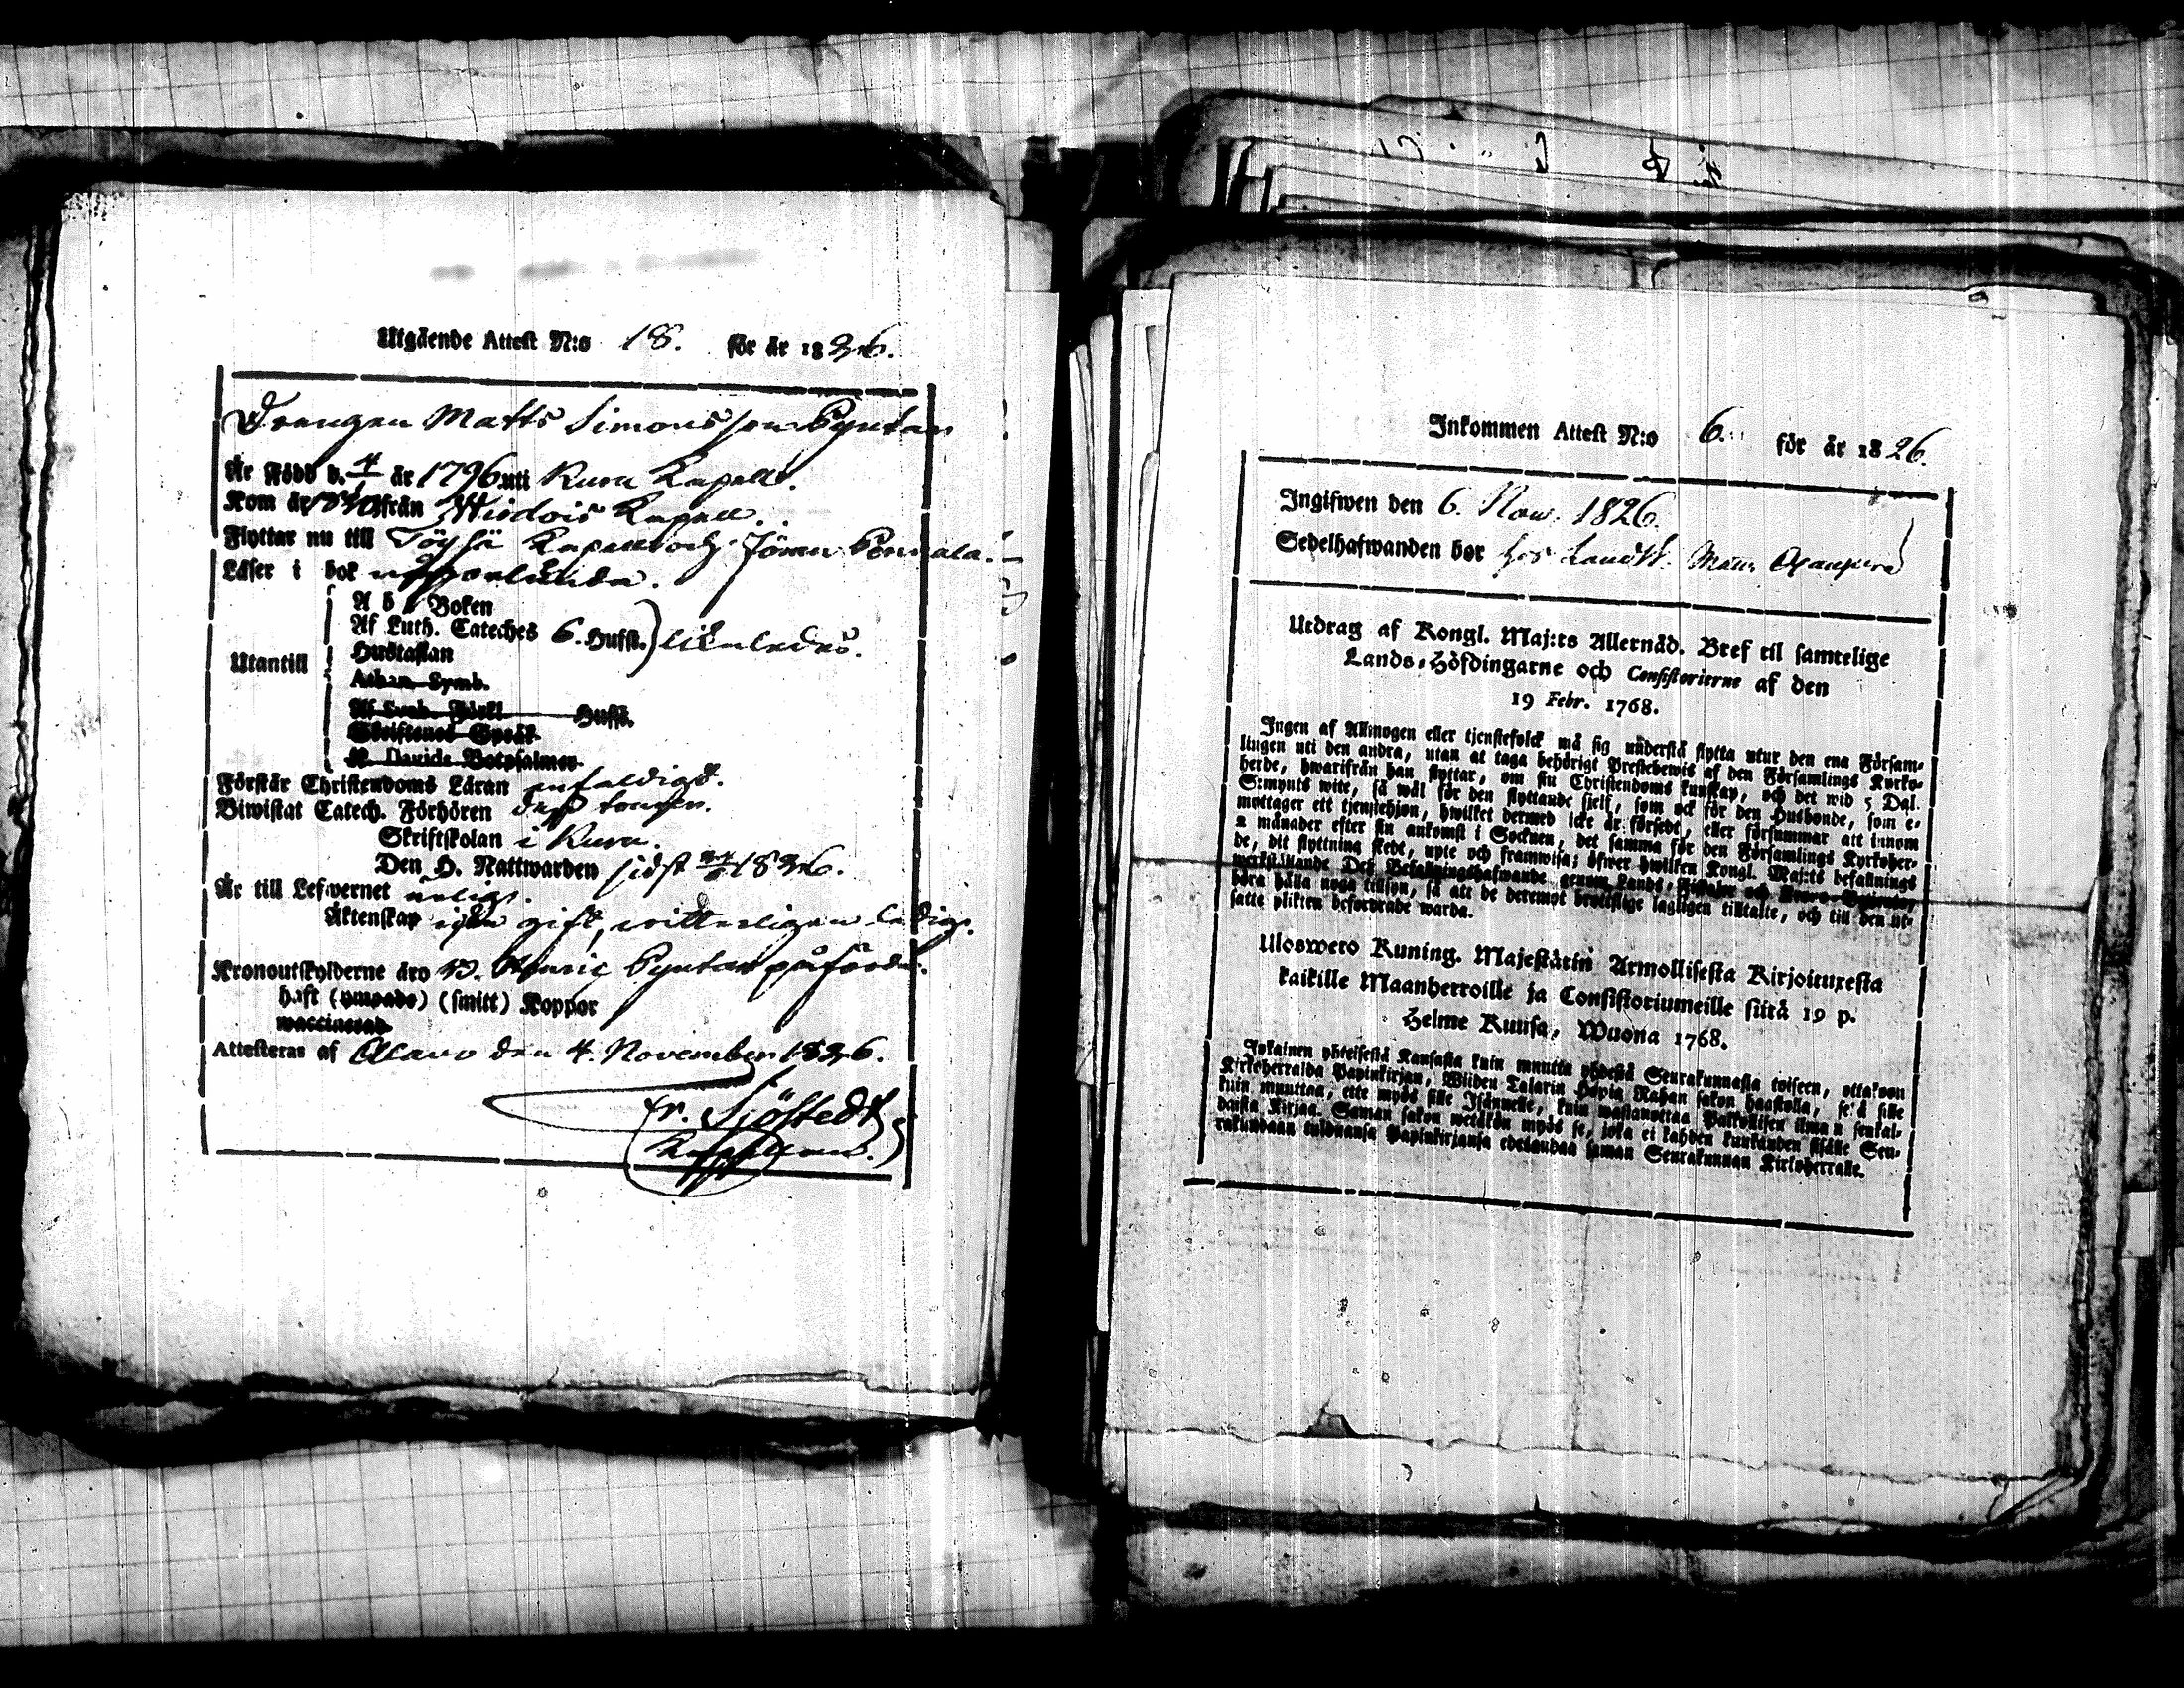 Utgående Attest N:o 18. för år 1826.
Drengen Matts Simonsson Pyntar
Är Född d. 4/ år 1796 uti Kura Kapell.
Kom år från Wirdois Kapell.
Flyttar nu till Töysä Kapell och Jöran
Läser i bok
A b c Boken
Af Luth. Cateches 6. Hufst. likaledes.
Hustaflan
Utantill
Athan. Symb.
Af Sveb. Förkl. Hufst.
Skriftenes Språk
K. Davids Botpsalmer
Förstår Christendoms Läran enfaldigt.
Biwistat Catech. Förhören
Skriftskolan i Kura.
Den H. Nattwarden sidst 1826.
Är till Lefwernet ärligt.
Äktenskap icke gift, witterligen ledig.
Kronoutskylderne äro Henric Pyntar påförde.
haft (ympade) (smitt) Koppor
waccinerad.
Attesteras af Alavo den 4. November 1826.
Er. Sjöstedt
Kapellan.
Inkommen Attest N:o 6. för år 1826.
Ingifwen den 6. Nov. 1826.
Sedelhafwanden bor hos Landtb. Matts
Utdrag af Kongl. Maj:ts Allernåd. Bref til samtelige
Lands-Höfdingarne och Consistorierne af den
19 Febr. 1768.
Ingen af Allmogen eller tjenstefolck må sig understå flytta utur den ena Försam-
lingen uti den andra, utan at taga behörigt Prestebewis af den Församlings Kyrko-
herde, hwarifrån han flyttar, om sin Christendoms kunskap, och det wid 5 Dal.
S:mynts wite, så wäl för den flyttande sjelf, som ock för den Husbonde, som e-
mottager ett tjenstehjon, hwilket dermed icke är försedt, eller försummar att innom
2 månader efter sin ankomst i Socknen, det samma för den Församlings Kyrkoher-
de, dit flyttning skedt, upte och framwisa; öfwer hwilken Kongl. Maj:ts befallnings
werkställande Dess Befallningshafwande genom Lands-Fiskaler och Krono-Betjente,
böra hålla noga tillsyn, så att de deremot brottslige lagligen tilltalte, och till den ut-
satte plikten befordrade warda.
Ulosweto Kuning. Majestätin Armollisesta Kirjoituxesta
kaikille Maanherroille ja Consistoriumeille siitä 19 p.
Helme Kuusa, Wuona 1768.
Jokainen yhteisestä Kansasta kuin muutta yhdestä Seurakunnasta toiseen, ottakoon
Kirkoherralda Papinkirjan, Wiiden Talarin Hopia Rahan sakon haastolla, se'ä sille
kuin muuttaa, ette myös sille Isännelle, kuin wastanottaa Palkollisen ilman senkal-
deista Kirjaa. Saman sakon wetäkön myös se, joka ei kahden kuukauden sisälle Seu-
rakundaan tulduansa Papinkirjansa edeslaupaa saman Seurakunnan Kirkoherralle.